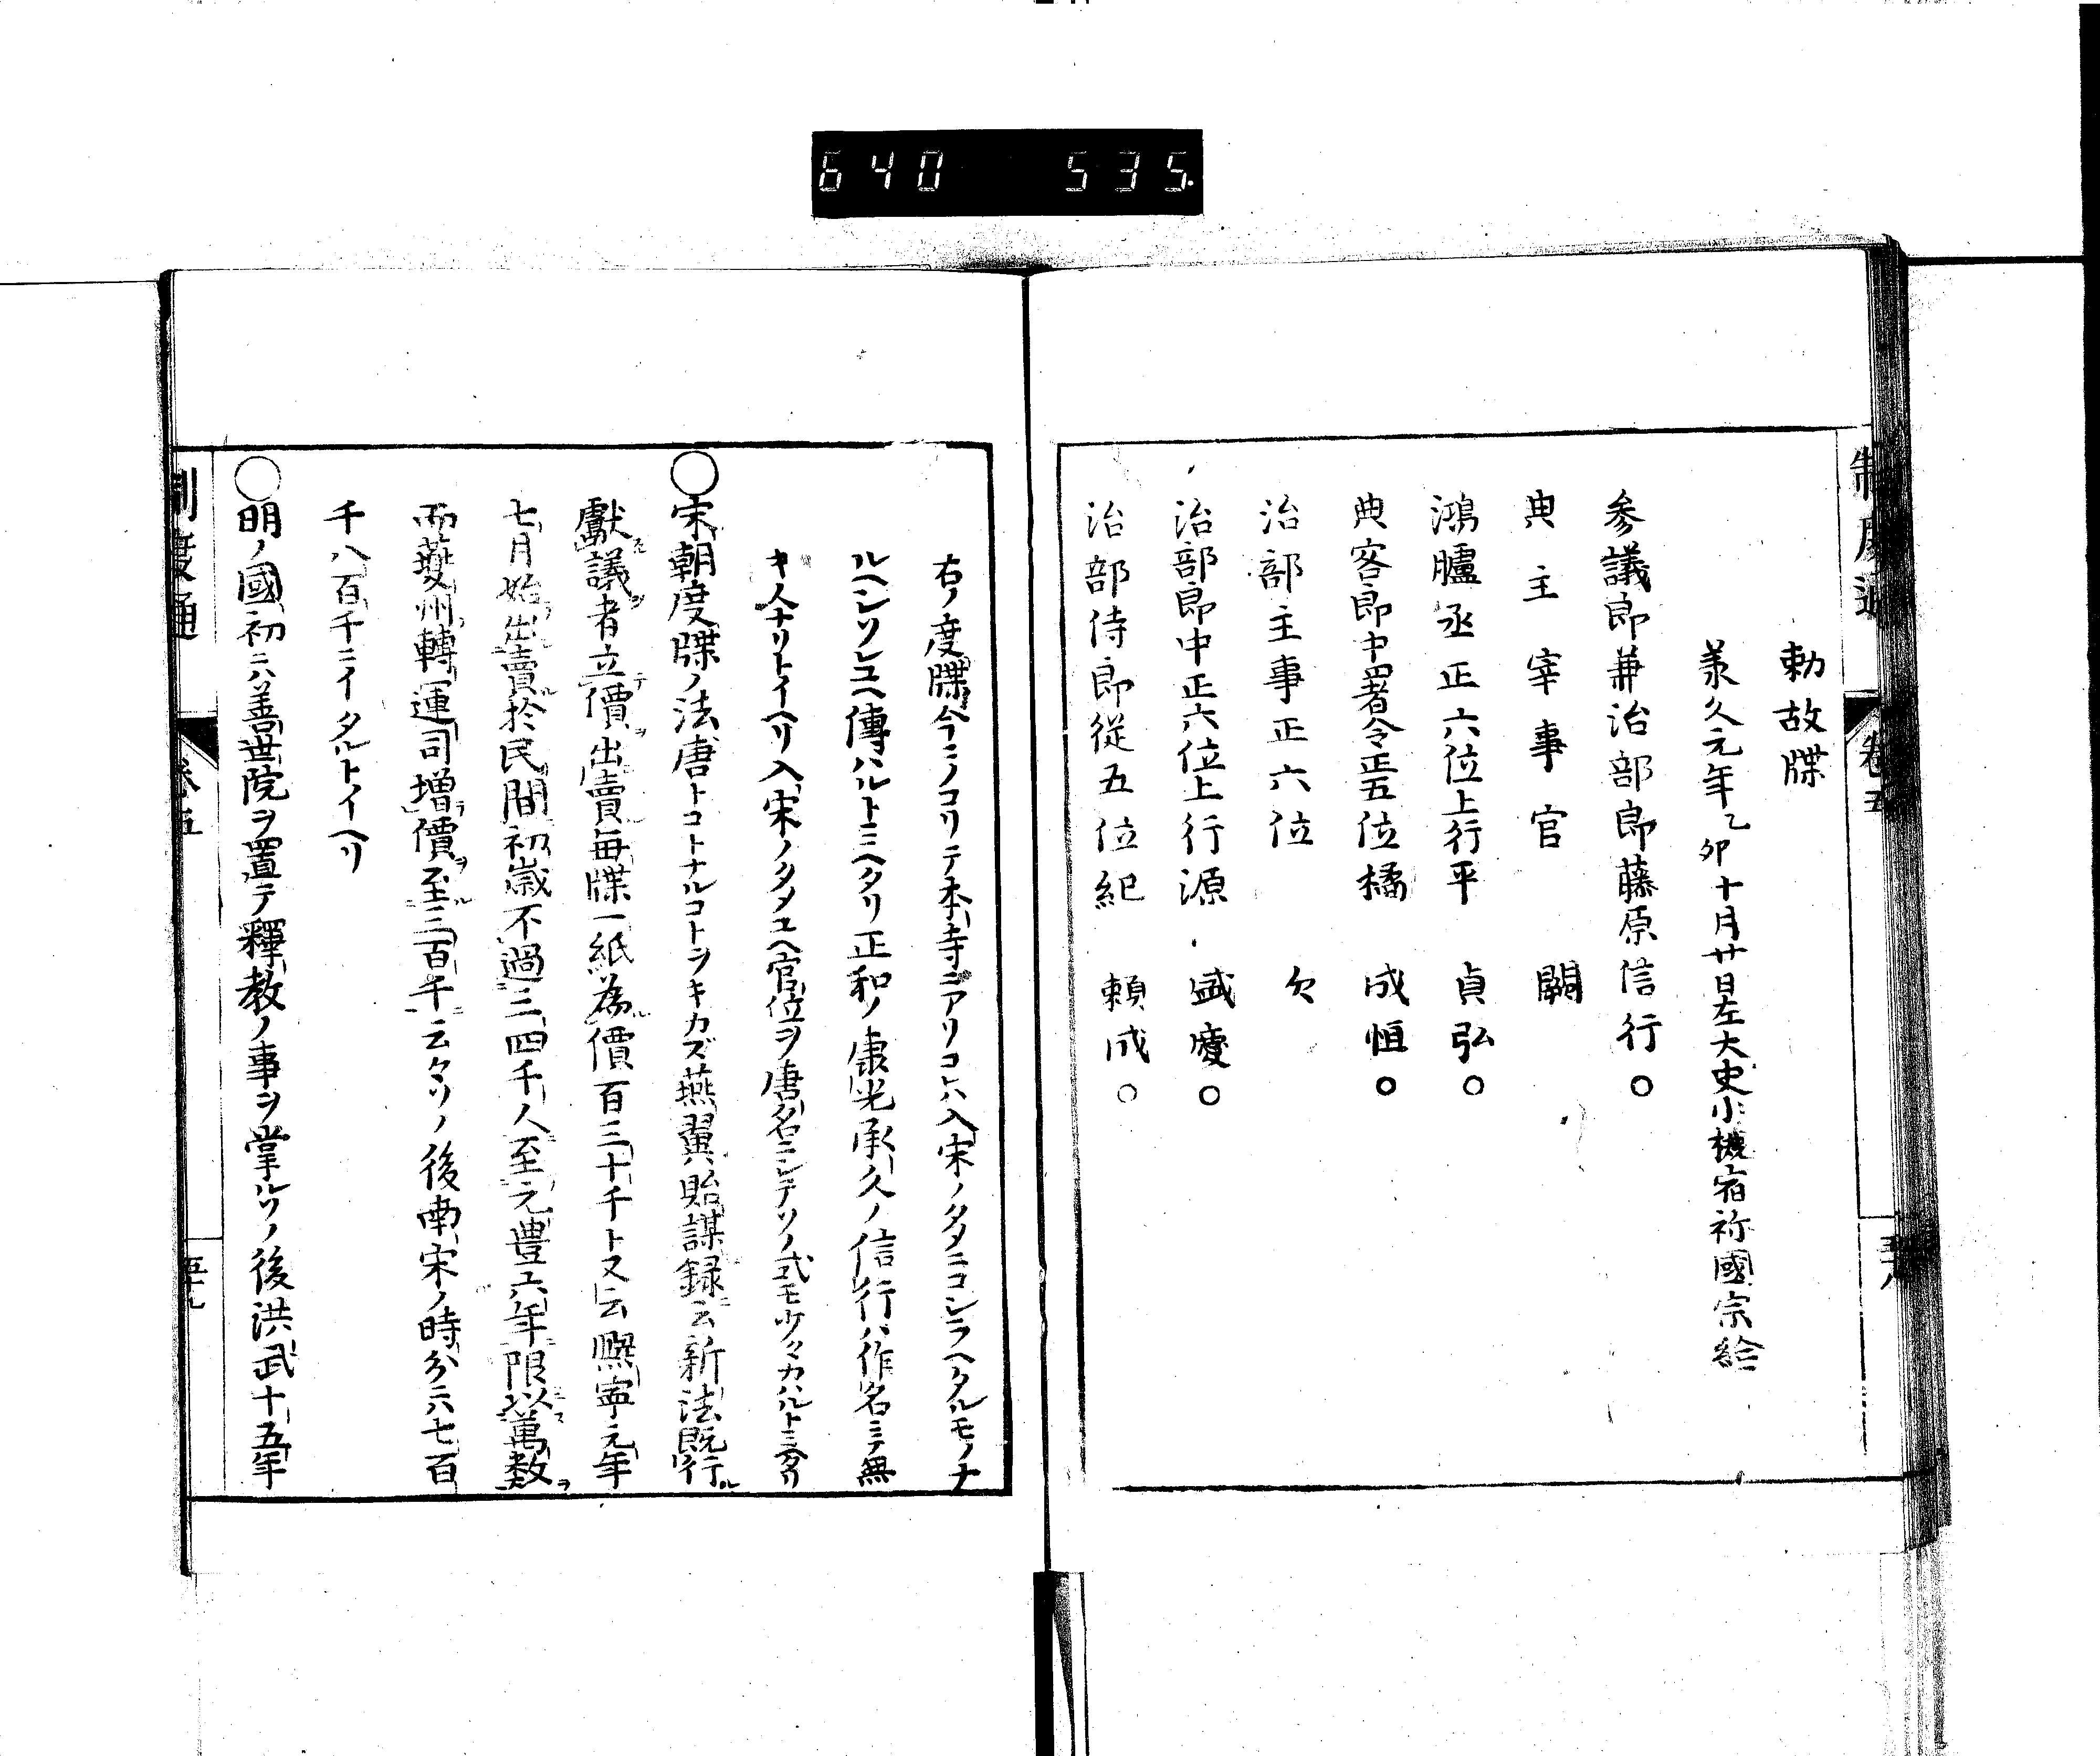 640 535.
制度通 卷五 五十八
勅故牒
羕久元年乙卯十月廿日左大史小槻宿祢國宗給
参議郎兼治部郎藤原信行○
典主宰事官 闕
鴻臚丞正六位上行平 貞弘○
典客郎中署令正五位橘 成恒○
治部主事正六位 欠
治部郎中正六位上行源 盛慶○
治部侍郎從五位紀 頼成○
右ノ度牒今ニノコリテ本寺ニアリコレハ入宋ノタメニコシラヘタルモノナ
ルヘシソレユヘ傳ハルトミヘタリ正和ノ康光承久ノ信行ハ作名ニテ無
キ人ナリトイヘリ入宋ノタメユヘ官位ヲ唐名ニシテソノ式モ少々カハルトミヘタリ
○宋朝度牒ノ法唐トコトナルコトヲキカズ燕翼貽謀録ニ云新法既行ル
獻議者立價出賣毎牒一紙為價百三十千ト又云熈寧元年
七月始出賣於民間初歳不過三四千人至元豊六年限以萬数
而䕫州轉運司増價至三百千云々ソノ後南宋ノ時分ニ六七百
千八百千ニイタルトイヘリ
○明ノ國初ニハ善世院ヲ置テ釋教ノ事ヲ掌ルソノ後洪武十五年
制度通 卷五 五十九